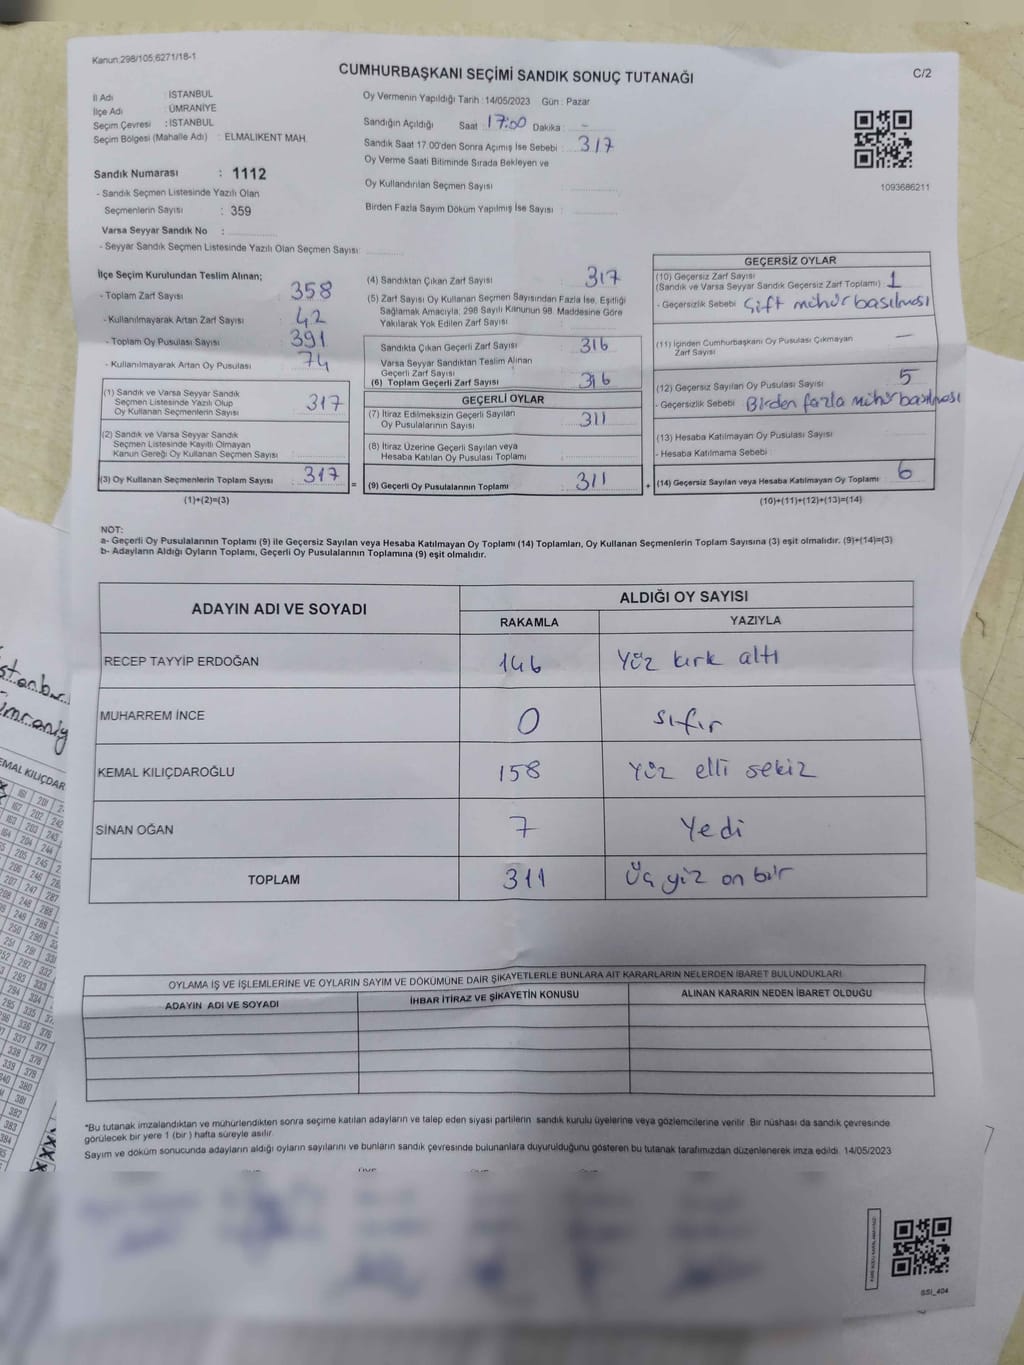 Kanun.298/105,6271/18-1
CUMHURBAŞKANI SEÇİMİ SANDIK SONUÇ TUTANAĞI
C/2
İl Adı : İSTANBUL
İlçe Adı : ÜMRANİYE
Seçim Çevresi : İSTANBUL
Seçim Bölgesi (Mahalle Adı) : ELMALIKENT MAH.
Oy Vermenin Yapıldığı Tarih :14/05/2023 Gün : Pazar
Sandığın Açıldığı Saat : 17:00 Dakika : -
Sandık Saat 17.00'den Sonra Açımış İse Sebebi : 317
Oy Verme Saati Bitiminde Sırada Bekleyen ve
Oy Kullandırılan Seçmen Sayısı :
Birden Fazla Sayım Döküm Yapılmış İse Sayısı :
1093686211
Sandık Numarası : 1112
- Sandık Seçmen Listesinde Yazılı Olan
Seçmenlerin Sayısı : 359
Varsa Seyyar Sandık No :
- Seyyar Sandık Seçmen Listesinde Yazılı Olan Seçmen Sayısı:
İlçe Seçim Kurulundan Teslim Alınan;
- Toplam Zarf Sayısı : 358
- Kullanılmayarak Artan Zarf Sayısı : 42
- Toplam Oy Pusulası Sayısı : 391
- Kullanılmayarak Artan Oy Pusulası : 74
(1) Sandık ve Varsa Seyyar Sandık
Seçmen Listesinde Yazılı Olup
Oy Kullanan Seçmenlerin Sayısı : 317
(2) Sandık ve Varsa Seyyar Sandık
Seçmen Listesinde Kayıtlı Olmayan
Kanun Gereği Oy Kullanan Seçmen Sayısı :
(3) Oy Kullanan Seçmenlerin Toplam Sayısı : 317 =
(1)+(2)=(3)
(4) Sandıktan Çıkan Zarf Sayısı : 317
(5) Zarf Sayısı Oy Kullanan Seçmen Sayısından Fazla İse, Eşitliği
Sağlamak Amacıyla, 298 Sayılı Kanunun 98. Maddesine Göre
Yakılarak Yok Edilen Zarf Sayısı :
Sandıkta Çıkan Geçerli Zarf Sayısı : 316
Varsa Seyyar Sandıktan Teslim Alınan
Geçerli Zarf Sayısı :
(6) Toplam Geçerli Zarf Sayısı : 316
GEÇERLİ OYLAR
(7) İtiraz Edilmeksizin Geçerli Sayılan
Oy Pusulalarının Sayısı : 311
(8) İtiraz Üzerine Geçerli Sayılan veya
Hesaba Katılan Oy Pusulası Toplamı :
(9) Geçerli Oy Pusulalarının Toplamı : 311 +
GEÇERSİZ OYLAR
(10) Geçersiz Zarf Sayısı
(Sandık ve Varsa Seyyar Sandık Geçersiz Zarf Toplamı) : 1
- Geçersizlik Sebebi : Çift mühür basılması
(11) İçinden Cumhurbaşkanı Oy Pusulası Çıkmayan
Zarf Sayısı : -
(12) Geçersiz Sayılan Oy Pusulası Sayısı : 5
- Geçersizlik Sebebi : Birden fazla mühür basılması
(13) Hesaba Katılmayan Oy Pusulası Sayısı :
- Hesaba Katılmama Sebebi :
(14) Geçersiz Sayılan veya Hesaba Katılmayan Oy Toplamı : 6
(10)+(11)+(12)+(13)=(14)
NOT:
a- Geçerli Oy Pusulalarının Toplamı (9) ile Geçersiz Sayılan veya Hesaba Katılmayan Oy Toplamı (14) Toplamları, Oy Kullanan Seçmenlerin Toplam Sayısına (3) eşit olmalıdır. (9)+(14)=(3)
b- Adayların Aldığı Oyların Toplamı, Geçerli Oy Pusulalarının Toplamına (9) eşit olmalıdır.
ADAYIN ADI VE SOYADI
ALDIĞI OY SAYISI
RAKAMLA YAZIYLA
RECEP TAYYİP ERDOĞAN 146 Yüz kırk altı
MUHARREM İNCE 0 sıfır
KEMAL KILIÇDAROĞLU 158 Yüz elli sekiz
SİNAN OĞAN 7 Yedi
TOPLAM 311 Üç yüz on bir
OYLAMA İŞ VE İŞLEMLERİNE VE OYLARIN SAYIM VE DÖKÜMÜNE DAİR ŞİKAYETLERLE BUNLARA AİT KARARLARIN NELERDEN İBARET BULUNDUKLARI
ADAYIN ADI VE SOYADI İHBAR İTİRAZ VE ŞİKAYETİN KONUSU ALINAN KARARIN NEDEN İBARET OLDUĞU
*Bu tutanak imzalandıktan ve mühürlendikten sonra seçime katılan adayların ve talep eden siyasi partilerin sandık kurulu üyelerine veya gözlemcilerine verilir. Bir nüshası da sandık çevresinde
görülecek bir yere 1 (bir ) hafta süreyle asılır.
Sayım ve döküm sonucunda adayların aldığı oyların sayılarını ve bunların sandık çevresinde bulunanlara duyurulduğunu gösteren bu tutanak tarafımızdan düzenlenerek imza edildi. 14/05/2023
SSI_404